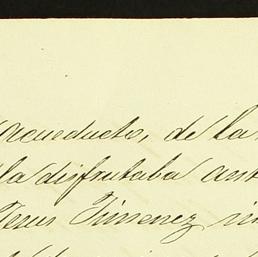 acueducto, de la
la disfrutaba ant
Jesus Jimenez